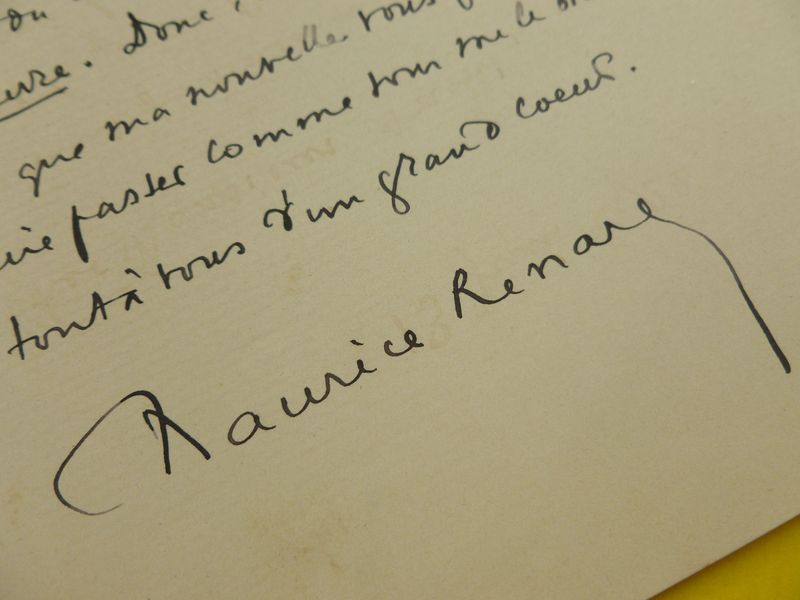 du
. Donc,
que ma nouvelle vous
passer comme pour me le
tout à vous d'un grand coeur.
Maurice Renard